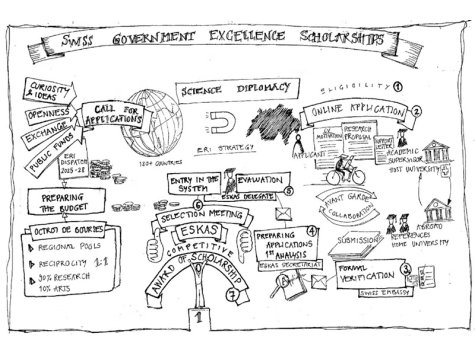 SWISS GOVERNMENT EXCELLENCE SCHOLARSHIPS
CURIOSITY
& IDEAS
OPENNESS
EXCHANGE
PUBLIC FUNDS
ERI
DISPATCH
2025-28
PREPARING
THE BUDGET
OCTROI DE BOURSES
REGIONAL POOLS
RECIPROCITY 1:1
90% RESEARCH
10% ARTS
CALL FOR
APPLICATIONS
180+ COUNTRIES
SCIENCE DIPLOMACY
ERI STRATEGY
ELIGIBILITY 1
ONLINE APPLICATION 2
APPLICANT
MOTIVATION
RESEARCH
PROPOSAL
SUPPORT
LETTER
ACADEMIC
SUPERVISOR
HOST UNIVERSITY
AVANT GARDE
COLLABORATION
ABROAD
REFERENCES
HOME UNIVERSITY
SUBMISSION
FORMAL
VERIFICATION
3
SWISS EMBASSY
4
PREPARING
APPLICATIONS
1ST ANALYSIS
ESKAS SECRETARIAT
ENTRY IN THE
SYSTEM
EVALUATION
ESKAS DELEGATE
5
6
SELECTION MEETING
ESKAS
COMPETITIVE
AWARD OF SCHOLARSHIP
7
1